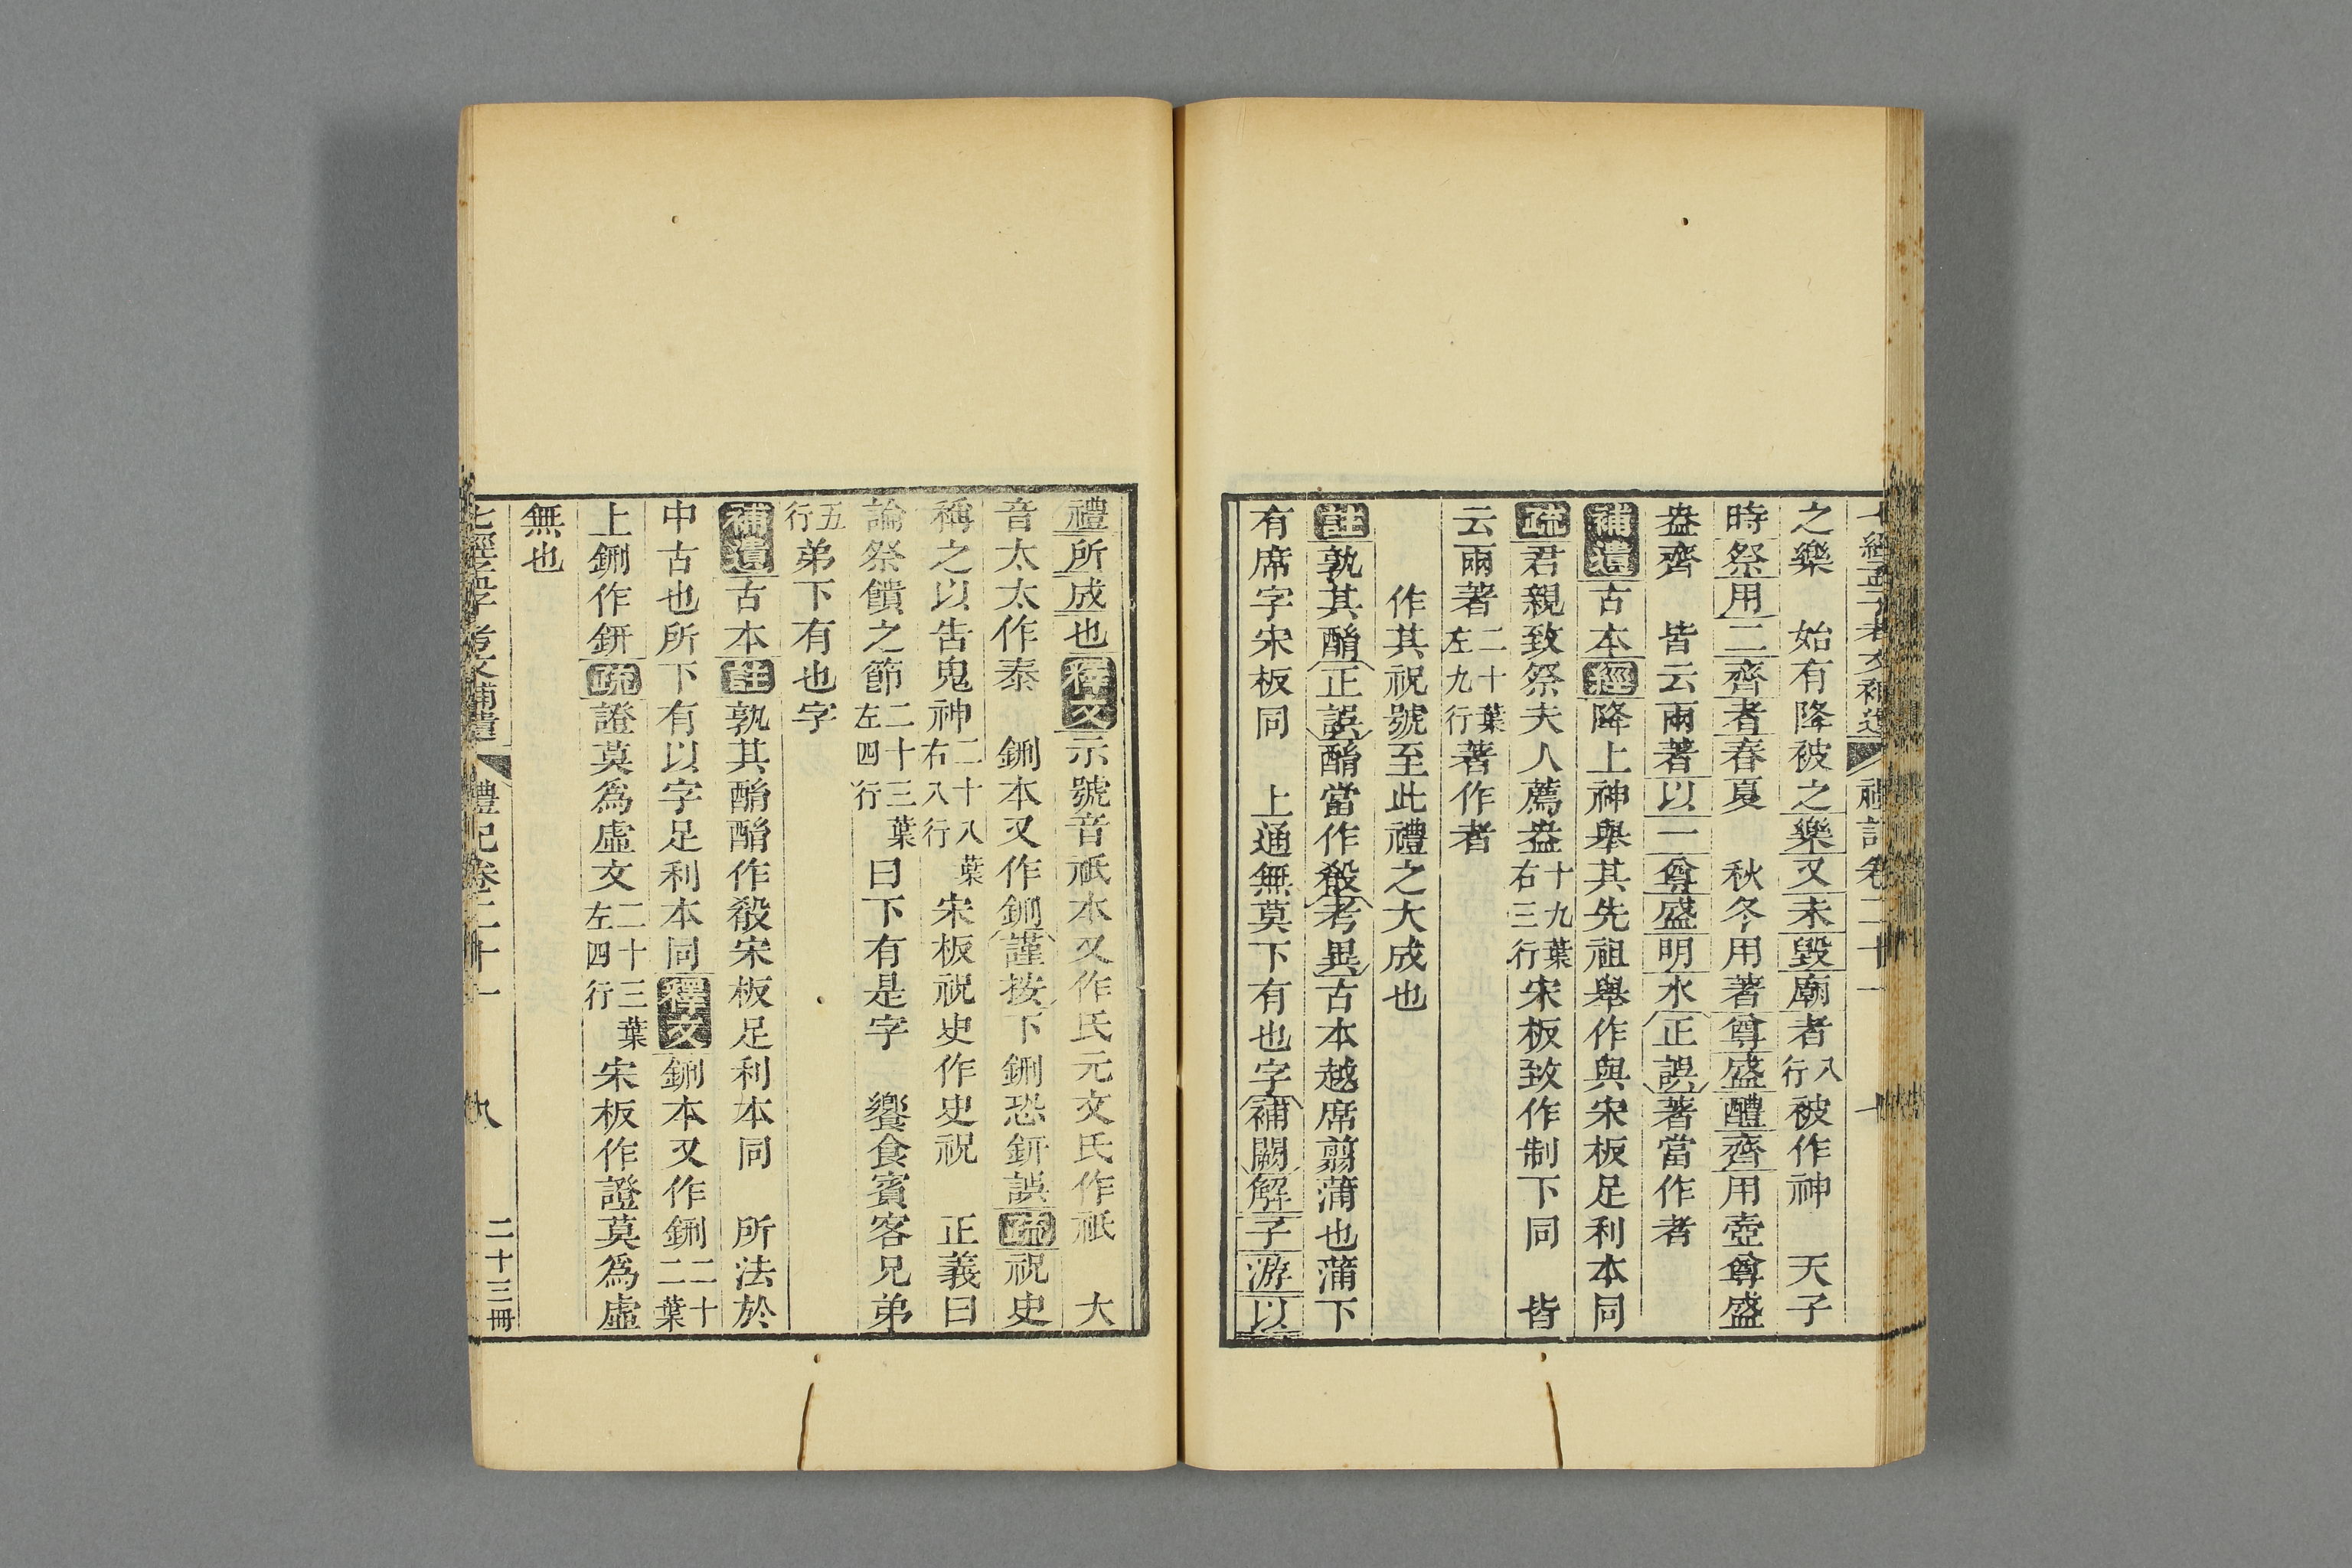 之樂　始有降被之樂又未毀廟者八行被作神　天子
時祭用二齊者春夏　秋冬用著尊盛醴齊用壺尊盛
盎齊　皆云兩著以一尊盛明水正誤著當作者
補遺古本經降上神舉其先祖舉作與宋板足利本同
疏君親致祭夫人薦盎十九葉右三行宋板致作制下同　皆
云兩著二十葉左九行著作者
作其祝號至此禮之大成也
註孰其酳正誤酳當作殽考異古本越席翦蒲也蒲下
有席字宋板同　上通無莫下有也字補闕解子游以
禮所成也釋文示號音祇本又作氏元文氏作祇　大
音太太作泰　鉶本又作鉶謹按下鉶恐鈃誤疏祝史
稱之以告鬼神二十八葉右八行宋板祝史作史祝　正義曰
論祭饋之節二十三葉左四行曰下有是字　饗食賓客兄弟
五行弟下有也字
補遺古本註孰其酳酳作殽宋板足利本同　所法於
中古也所下有以字足利本同釋文鉶本又作鉶二十二葉
上鉶作鈃疏證莫爲虛文二十三葉左四行宋板作證莫爲虛
無也
七經孟子考文補遺　禮記卷二十一　九　二十三冊